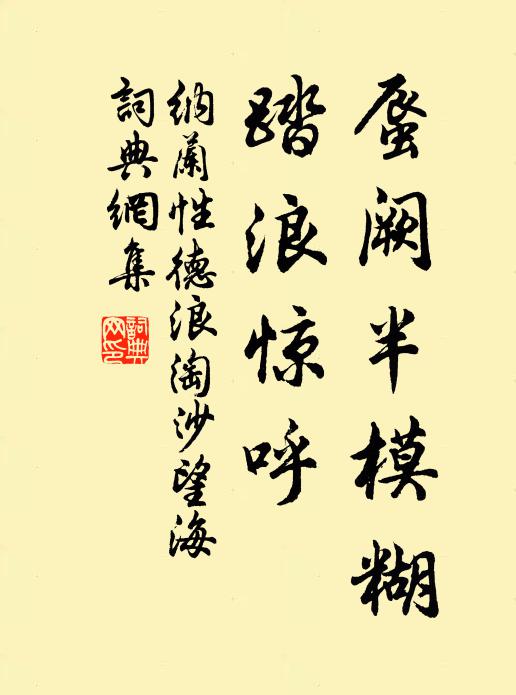 蜃阙半模糊
踏浪惊呼
纳兰性德浪淘沙望海
词典網集
詞典網印